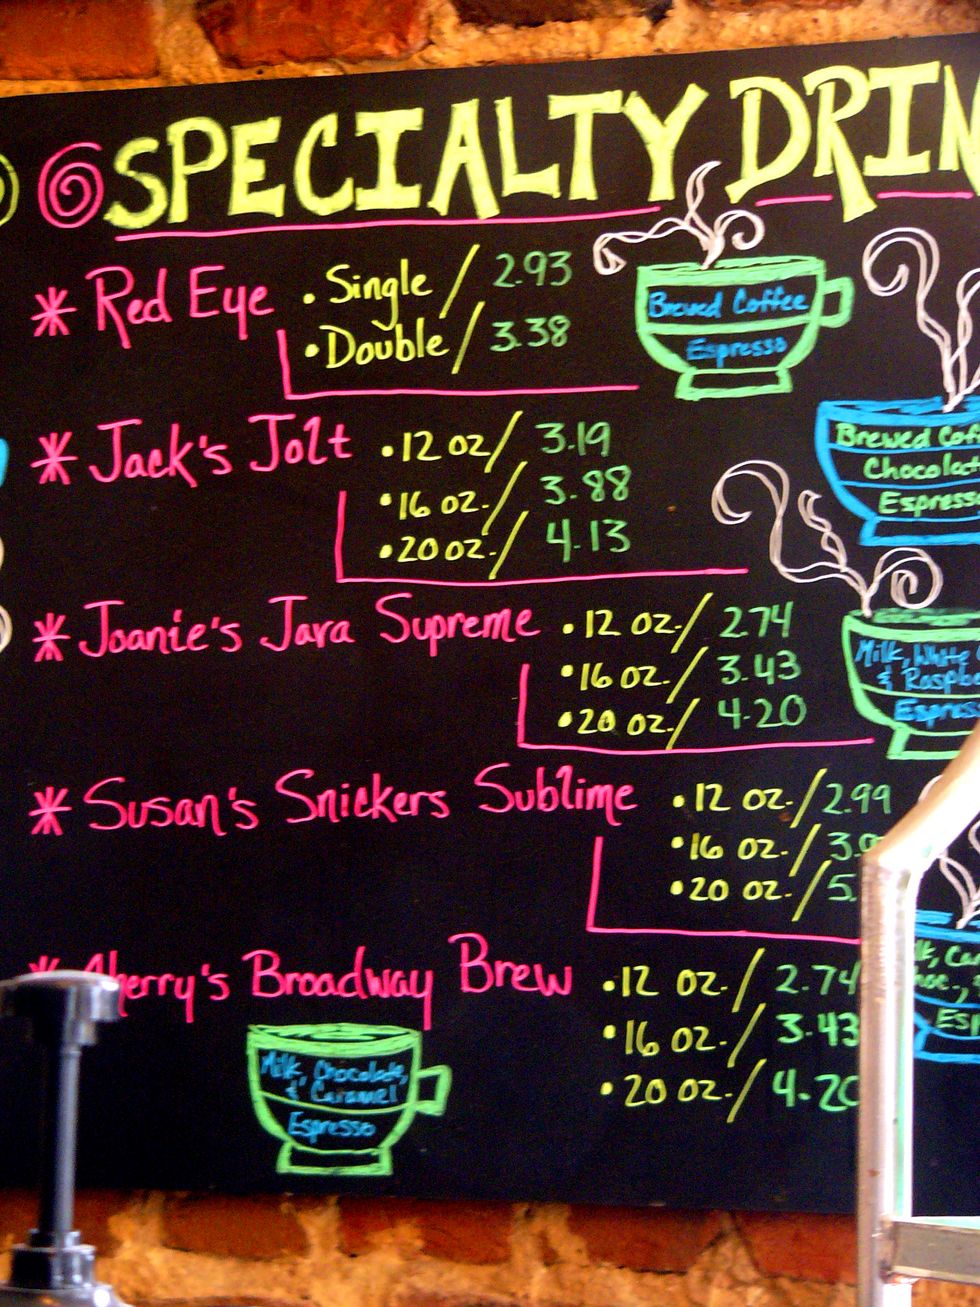 SPECIALTY DRIN
* Red Eye • Single / 2.93
• Double / 3.38
Brewed Coffee
Espresso
* Jack's Jolt • 12 oz / 3.19
• 16 oz. / 3.88
• 20 oz. / 4.13
Brewed Cof
Chocolat
Espress
* Joanie's Java Supreme • 12 oz. / 2.74
• 16 oz. / 3.43
• 20 oz. / 4.20
Milk, White
& Raspbe
Espres
* Susan's Snickers Sublime • 12 oz. / 2.99
• 16 oz. / 3.
• 20 oz. / 5.
lk, Car
hoc.,
Esp
* herry's Broadway Brew • 12 oz. / 2.74
• 16 oz. / 3.43
• 20 oz. / 4.20
Milk, Chocolate,
& Caramel
Espresso